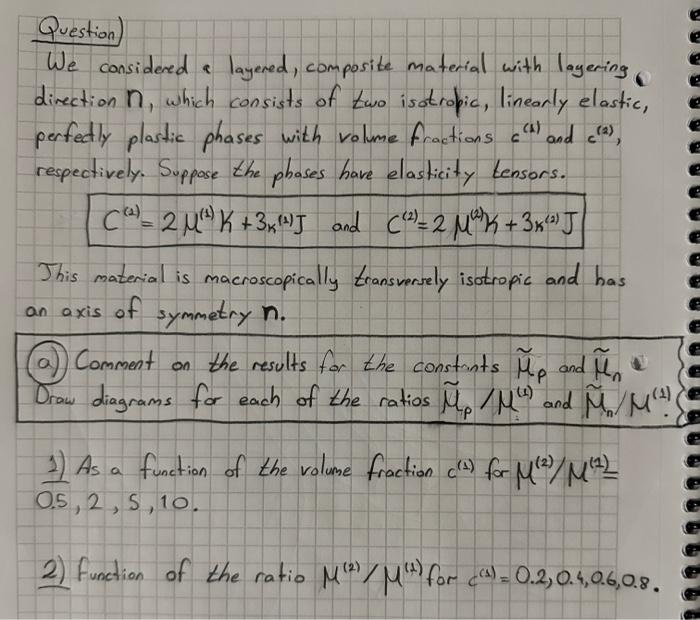 Question)
We considered a layered, composite material with layering
direction n, which consists of two isotropic, linearly elastic,
perfectly plastic phases with volume fractions c⁽¹⁾ and c⁽²⁾,
respectively. Suppose the phases have elasticity tensors.
C⁽²⁾ = 2 μ⁽¹⁾ K + 3κ⁽¹⁾ J and C⁽²⁾ = 2 μ⁽²⁾ K + 3κ⁽²⁾ J
This material is macroscopically transversely isotropic and has
an axis of symmetry n.
a) Comment on the results for the constants μ̃ₚ and μ̃ₙ
Draw diagrams for each of the ratios μ̃ₚ / μ⁽¹⁾ and μ̃ₙ / μ⁽¹⁾.
1) As a function of the volume fraction c⁽¹⁾ for μ⁽²⁾/μ⁽¹⁾=
0.5, 2, 5, 10.
2) function of the ratio μ⁽²⁾ / μ⁽¹⁾ for c⁽¹⁾ = 0.2, 0.4, 0.6, 0.8.